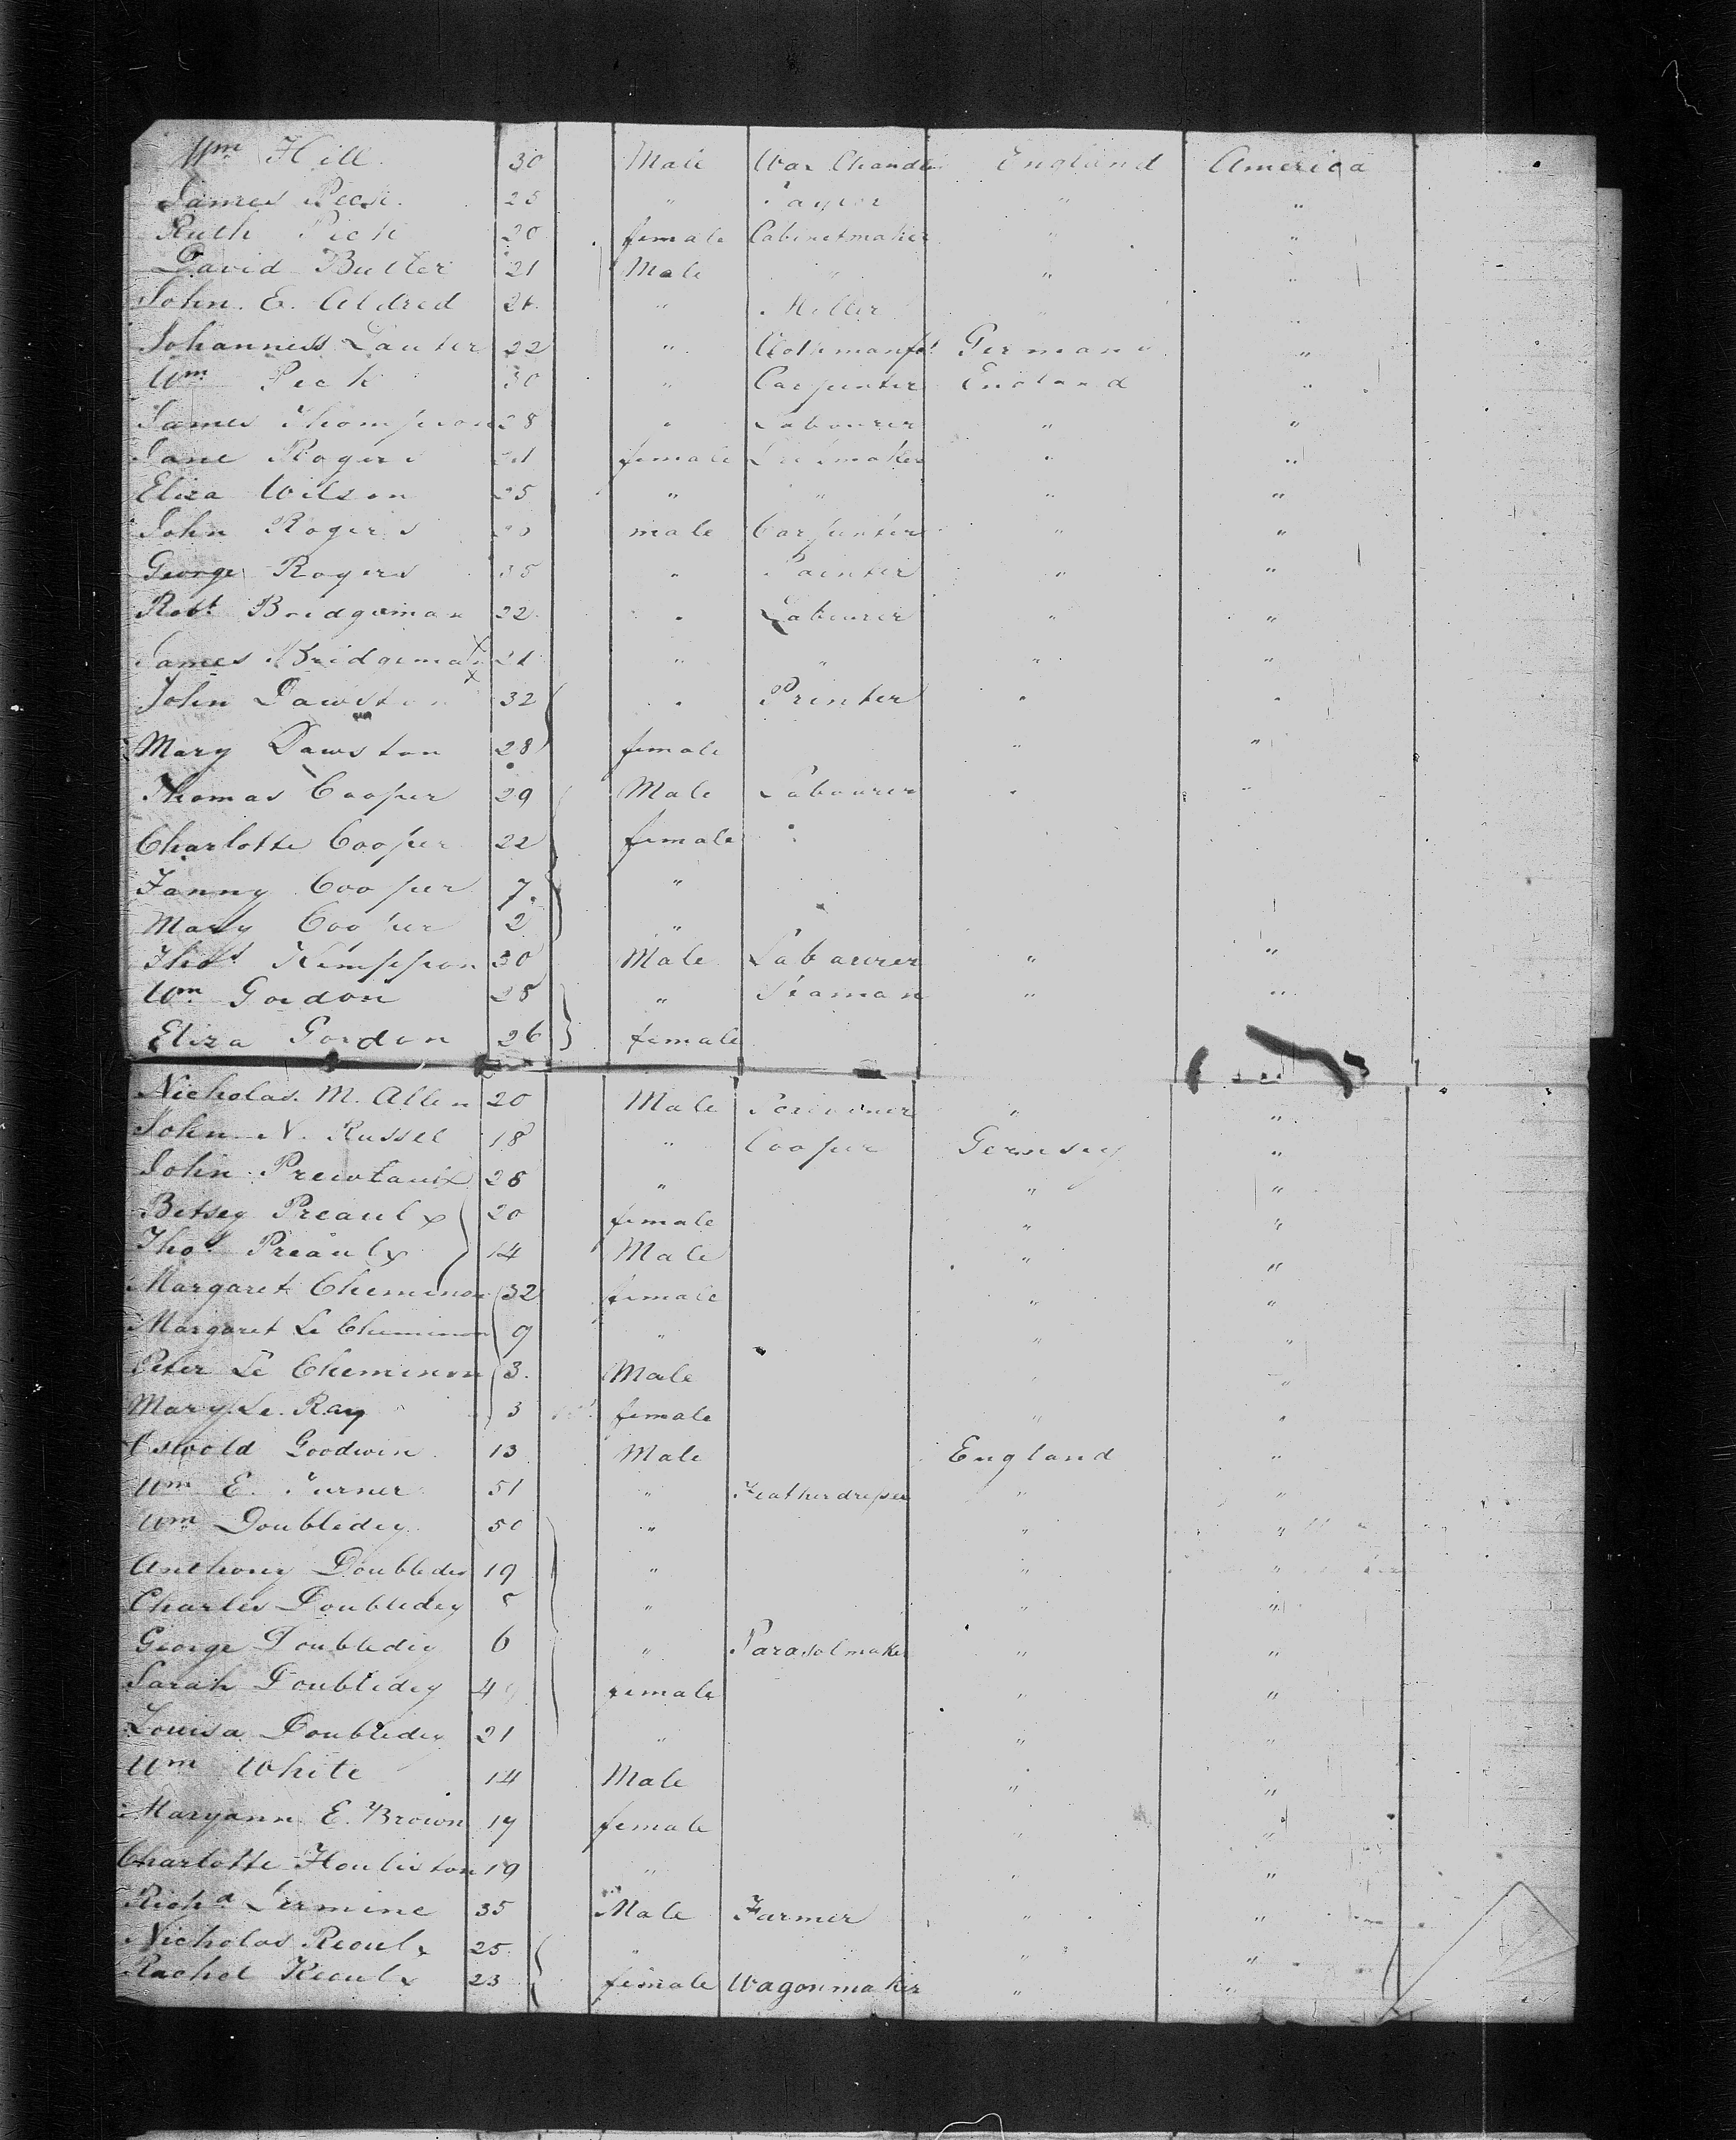 Wm Hill 30 Male Wax Chandler England America
James 25 " " "
Ruth Peck 20 female Cabinetmaker " "
David Butler 21 Male " " "
John E. Aldred 21 " Miller " "
Johanness Lauter 22 " Germany "
Wm Peck 30 " Carpenter England "
James Thompson 28 " Labourer " "
Jane Rogers female " "
Eliza Wilson 25 " " " "
John Rogers male Carpenter " "
George Rogers 35 " Painter " "
Robt Bridgeman 22 " Labourer " "
James Bridgeman 21 " " " "
John Dawston 32 " Printer " "
Mary Dawston 28 female " "
Thomas Cooper 29 Male Labourer " "
Charlotte Cooper 22 female "
Fanny Cooper 7 "
Mary Cooper 2 "
Thos Kimpson 30 Male Labourer " "
Wm Gordon 28 " Seaman " "
Eliza Gordon 26 female
Nicholas M. Allen 20 Male " "
John N. Russel 18 " Cooper Gernsey "
John 28 " " "
Betsey Preaulx 20 female " "
Thos Preaulx 14 Male " "
Margaret Cheminon 32 female " "
Margaret Le Cheminon 9 " " "
Peter Le Cheminon 3 Male " "
Mary Le Ray 3 female " "
Oswold Goodwin 13 Male England "
Wm E. Turner 51 " Featherdresser " "
Wm Doubledey 50 " " "
Anthony Doubledey 19 " " "
Charles Doubledey " " "
George Doubledey 6 " Parasolmaker " "
Sarah Doubledey female " "
Louisa Doubledey 21 " " "
Wm White 14 Male " "
Maryann E. Brown 17 female " "
Charlotte Houliston 19 " " "
Richd Jermine 35 Male Farmer " "
Nicholas Reoulx 25 " " "
Rachel Reoulx 23 female Wagonmaker " "